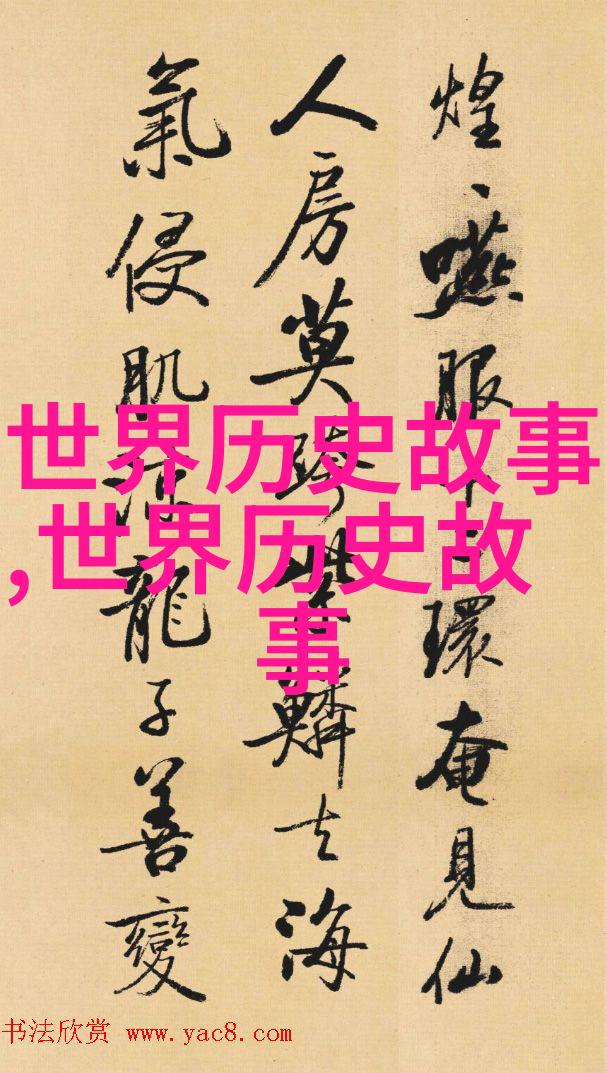 煌、嚥服十二環奄見仙
人房莫跨紫鱗去海
氣侵肌涼龍子善變
世界历史故事
,世界历史故
事
书法欣赏 www.yac8.com